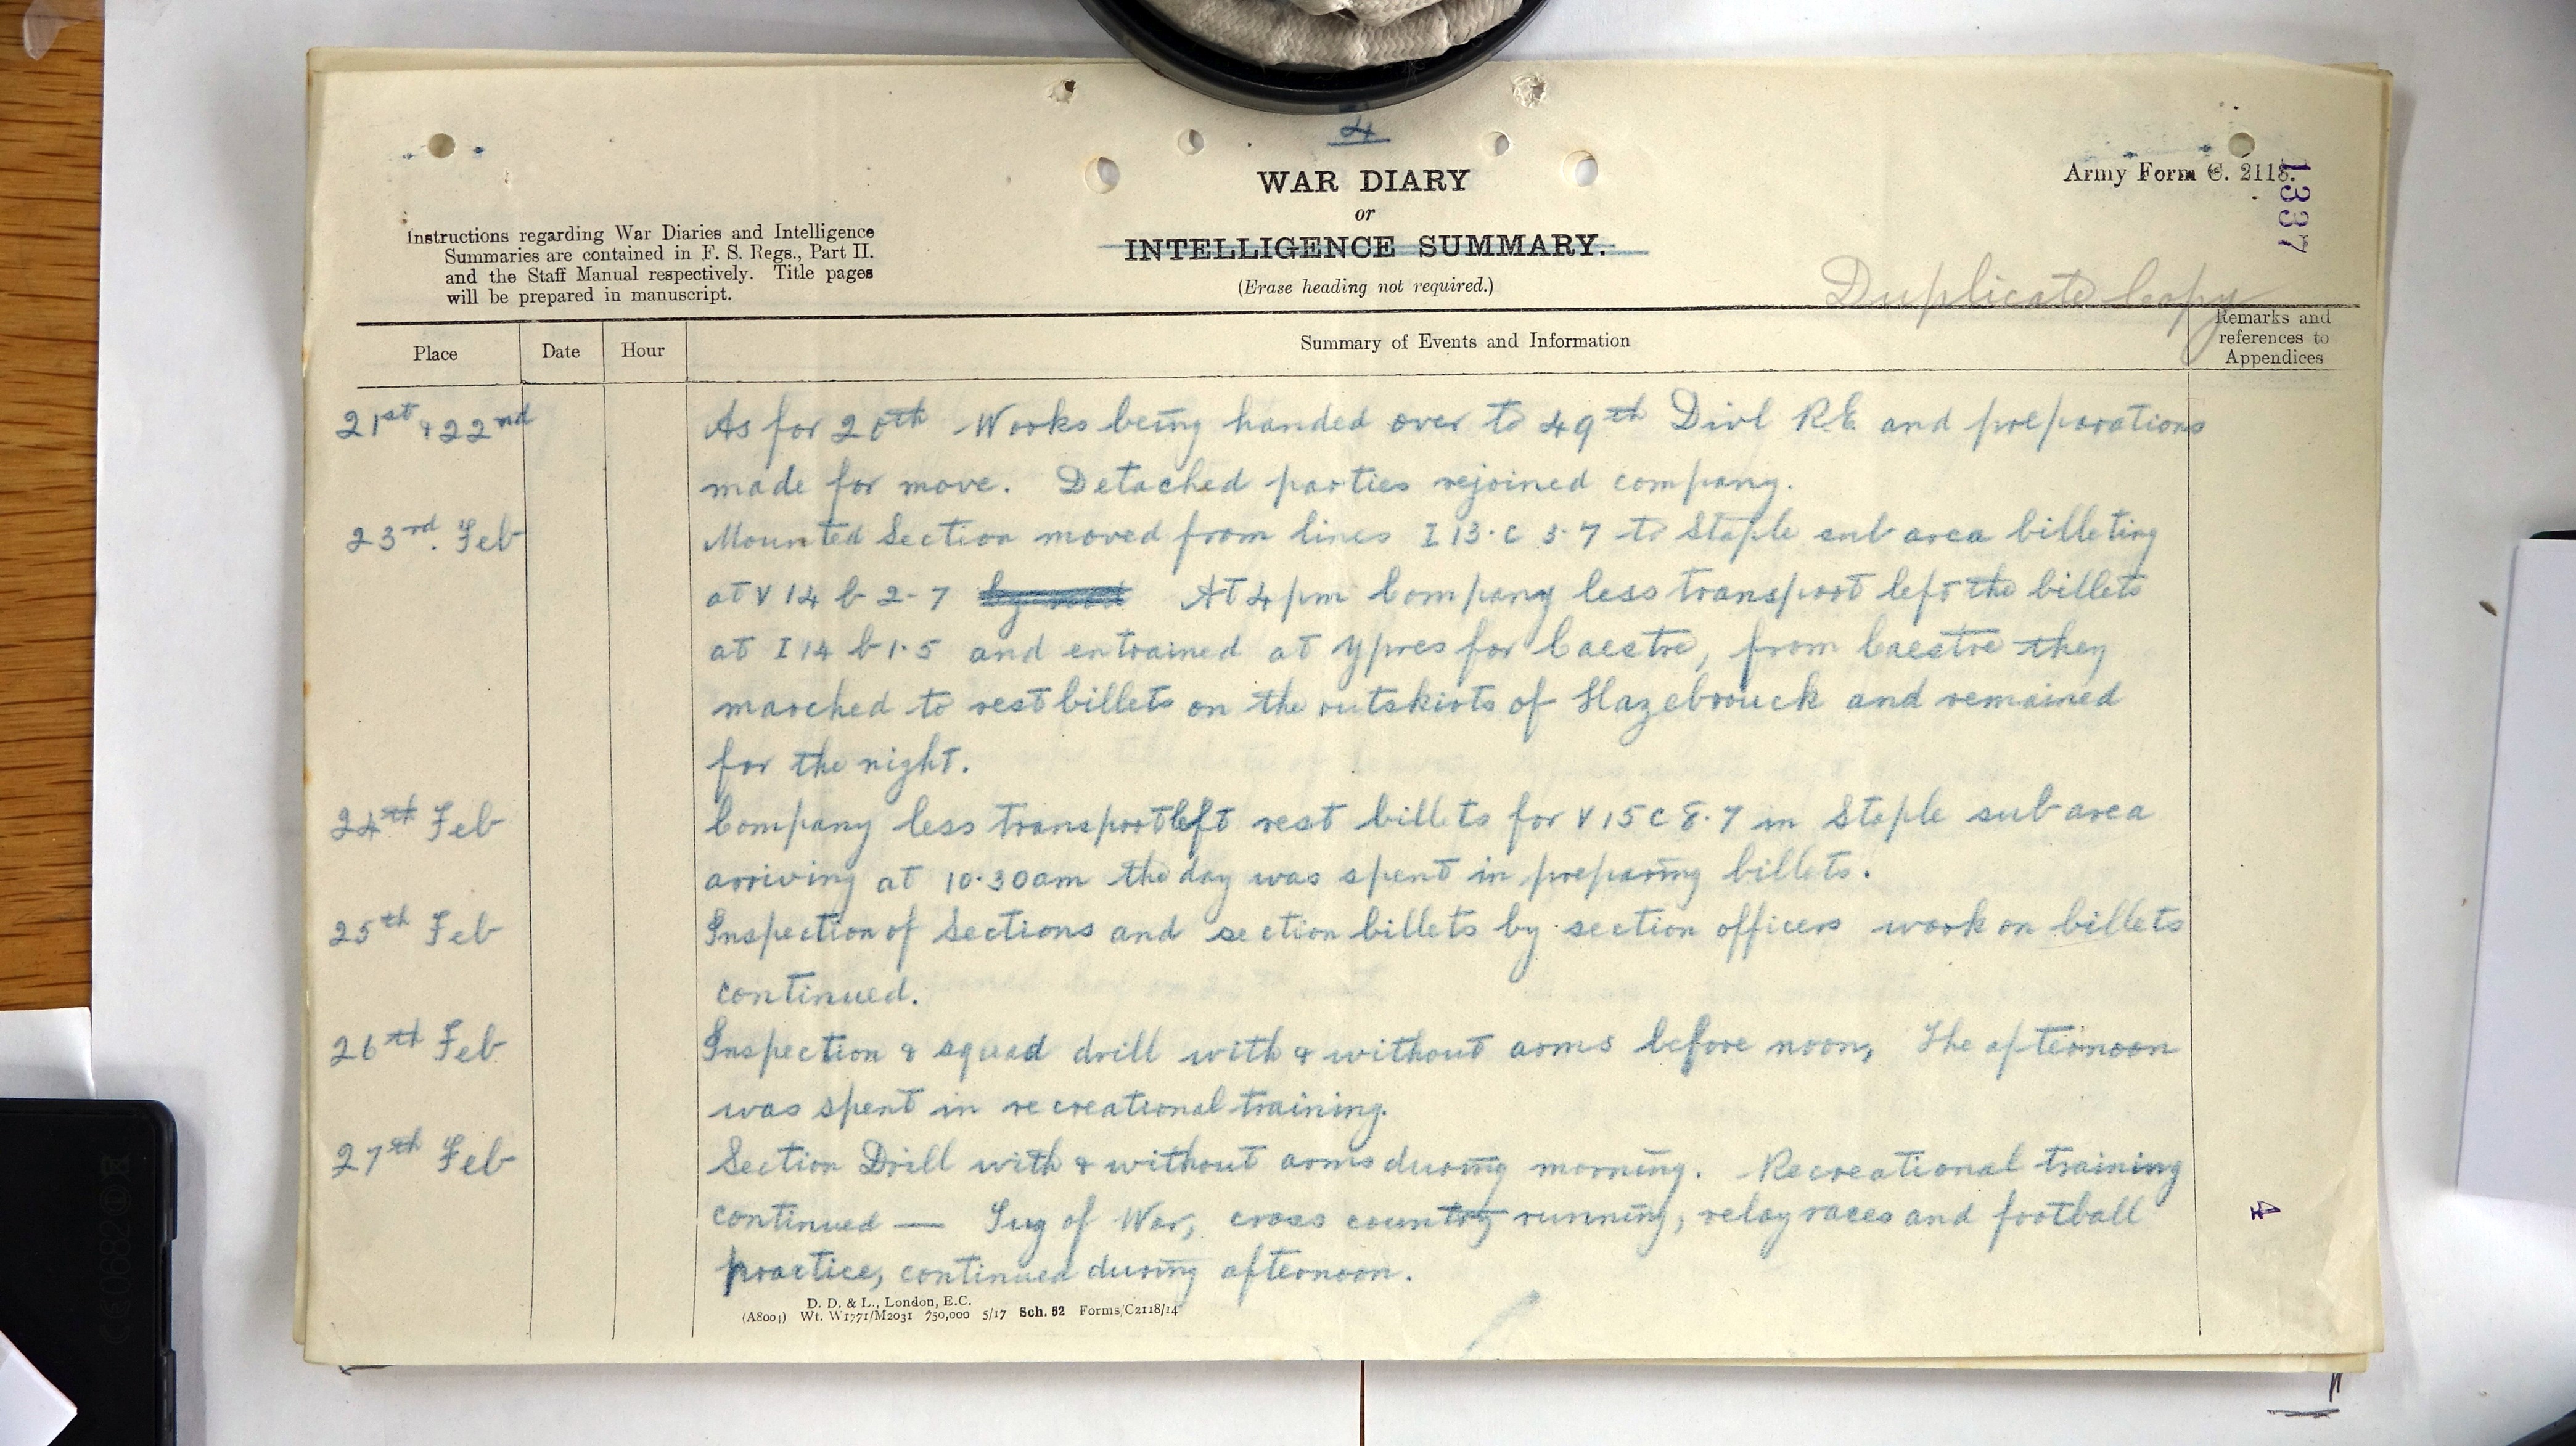 4
WAR DIARY
or
INTELLIGENCE SUMMARY.
(Erase heading not required.)
Army Form C. 2118.
1337
Instructions regarding War Diaries and Intelligence
Summaries are contained in F. S. Regs., Part II.
and the Staff Manual respectively. Title pages
will be prepared in manuscript.
Duplicate Copy
Place Date Hour Summary of Events and Information Remarks and references to Appendices
21st & 22nd As for 20th Works being handed over to 49th Divl R.E. and preparations
made for move. Detached parties rejoined company.
23rd. Feb Mounted Section moved from lines I 13.c 3.7 to Staple sub area billeting
at V 14 b 2-7 At 4 pm Company less transport left the billets
at I 14 b 1.5 and entrained at Ypres for Caestre, from Caestre they
marched to rest billets on the outskirts of Hazebrouck and remained
for the night.
24th Feb Company less transport left rest billets for V 15 c 8.7 in Staple sub area
arriving at 10.30am the day was spent in preparing billets.
25th Feb Inspection of Sections and section billets by section officers work on billets
continued.
26th Feb Inspection & squad drill with & without arms before noon, The afternoon
was spent in recreational training.
27th Feb Section Drill with & without arms during morning. Recreational training
continued — Tug of War, cross country running, relay races and football
practice, continued during afternoon.
4
D. D. & L., London, E.C.
(A8001) Wt. W1771/M2031 750,000 5/17 Sch. 52 Forms/C2118/14